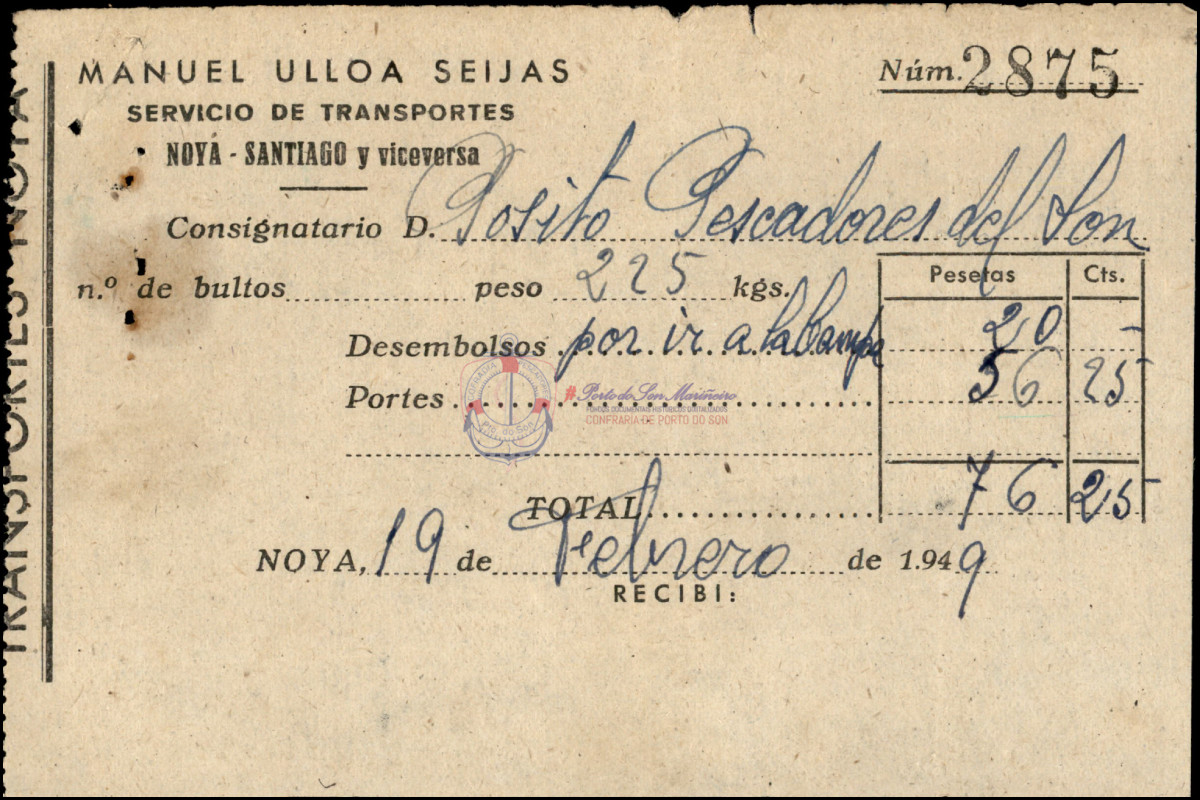 MANUEL ULLOA SEIJAS
SERVICIO DE TRANSPORTES
NOYA - SANTIAGO y viceversa
Núm. 2875
Consignatario D. Posito Pescadores del Son
n.º de bultos peso 225 kgs.
Pesetas Cts.
Desembolsos por ir a 20 -
Portes 56 25
TOTAL 76 25
NOYA, 19 de Febrero de 1.949
RECIBI:
TRANSPORTES NOYA
COFRADIA
Pto. do Son
# Porto do Son Mariñeiro
FONDOS DOCUMENTAIS HISTÓRICOS DIXITALIZADOS
CONFRARIA DE PORTO DO SON